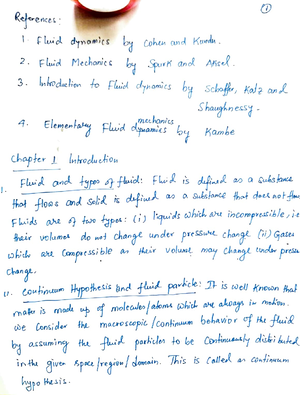 ①
References:
1. Fluid dynamics by Cohen and Kundu.
2. Fluid Mechanics by Spurk and Aksel.
3. Introduction to Fluid dynamics by Schaffer, Katz and
Shaughnessy.
mechanics
4. Elementary Fluid dynamics by Kambe
Chapter 1 Introduction
i. Fluid and types of fluid: Fluid is defined as a substance
that flows and solid is defined as a substance that does not flow
Fluids are of two types: (i) liquids which are incompressible, i.e
their volumes do not change under pressure change (ii) Gases
which are compressible as their volume may change under pressure
change.
ii. Continuum Hypothesis and fluid particle: It is well known that
matter is made up of molecules/atoms which are always in motion.
We consider the macroscopic/continuum behavior of the fluid
by assuming the fluid particles to be continuously distributed
in the given space/region/domain. This is called as continuum
hypothesis.